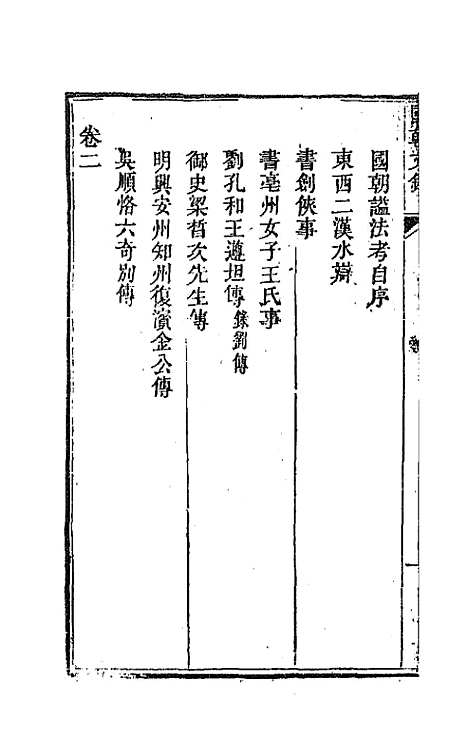 國朝文錄
國朝諡法考自序
東西二漢水辯
書劍俠事
書亳州女子王氏事
劉孔和王遵坦傳錄劉傳
御史梁皙次先生傳
明興安州知州復濱金公傳
吳順恪六奇別傳
卷二